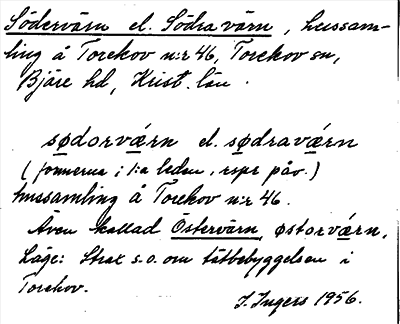 Södervärn el. Södra värn, hussam-
ling å Torekov n:r 46, Torekov sn,
Bjäre hd, Krist. län.
sødorvæ̱rn el. sødravæ̱rn
(formerna i 1:a leden, rspr påv.)
hussamling å Torekov n:r 46.
Även kallad Östervärn, østorvæ̱rn.
Läge: Strax s.o. om tätbebyggelsen i
Torekov.
J. Ingers 1956.